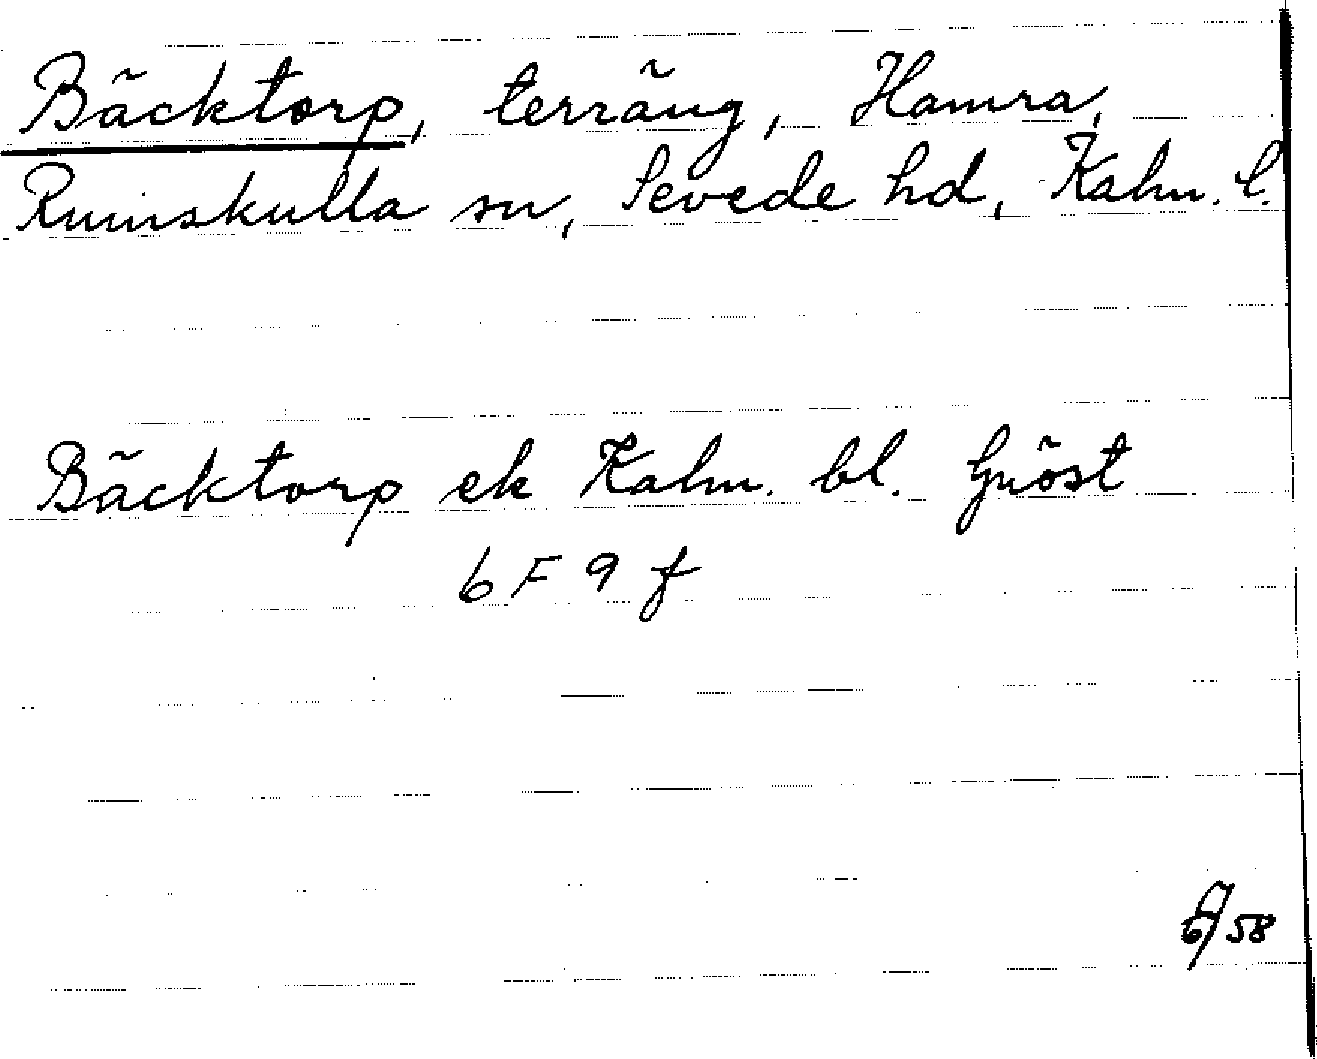 Bäcktorp, terräng, Hamra,
Rumskulla sn, Sevede hd, Kalm. l.
Bäcktorp ek Kalm. bl. Gnöst
6 F 9 f
/58